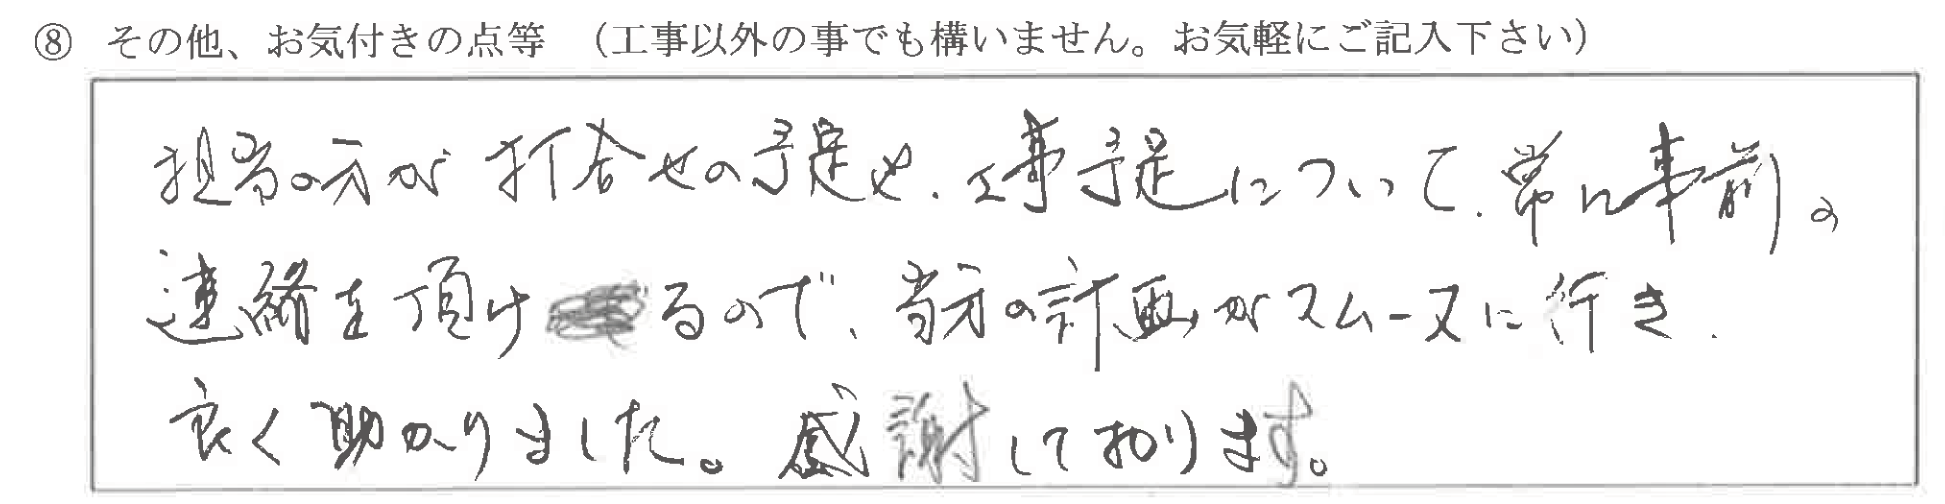 ⑧ その他、お気付きの点等 （工事以外の事でも構いません。お気軽にご記入下さい）
担当の方が打合せの予定や、工事予定について、常に事前の
連絡を頂けるので、当方の計画がスムーズに行き、
良く助かりました。感謝しております。